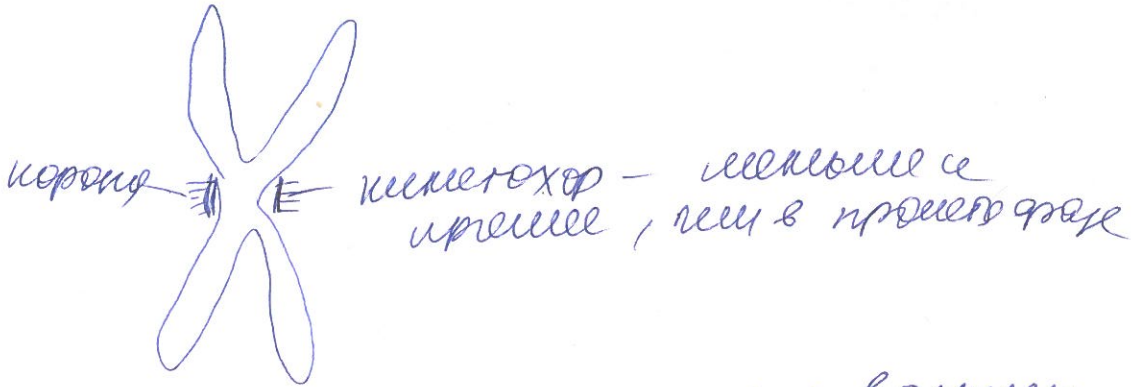 корона
кинетохор – меньше и
, чем в прометафазе